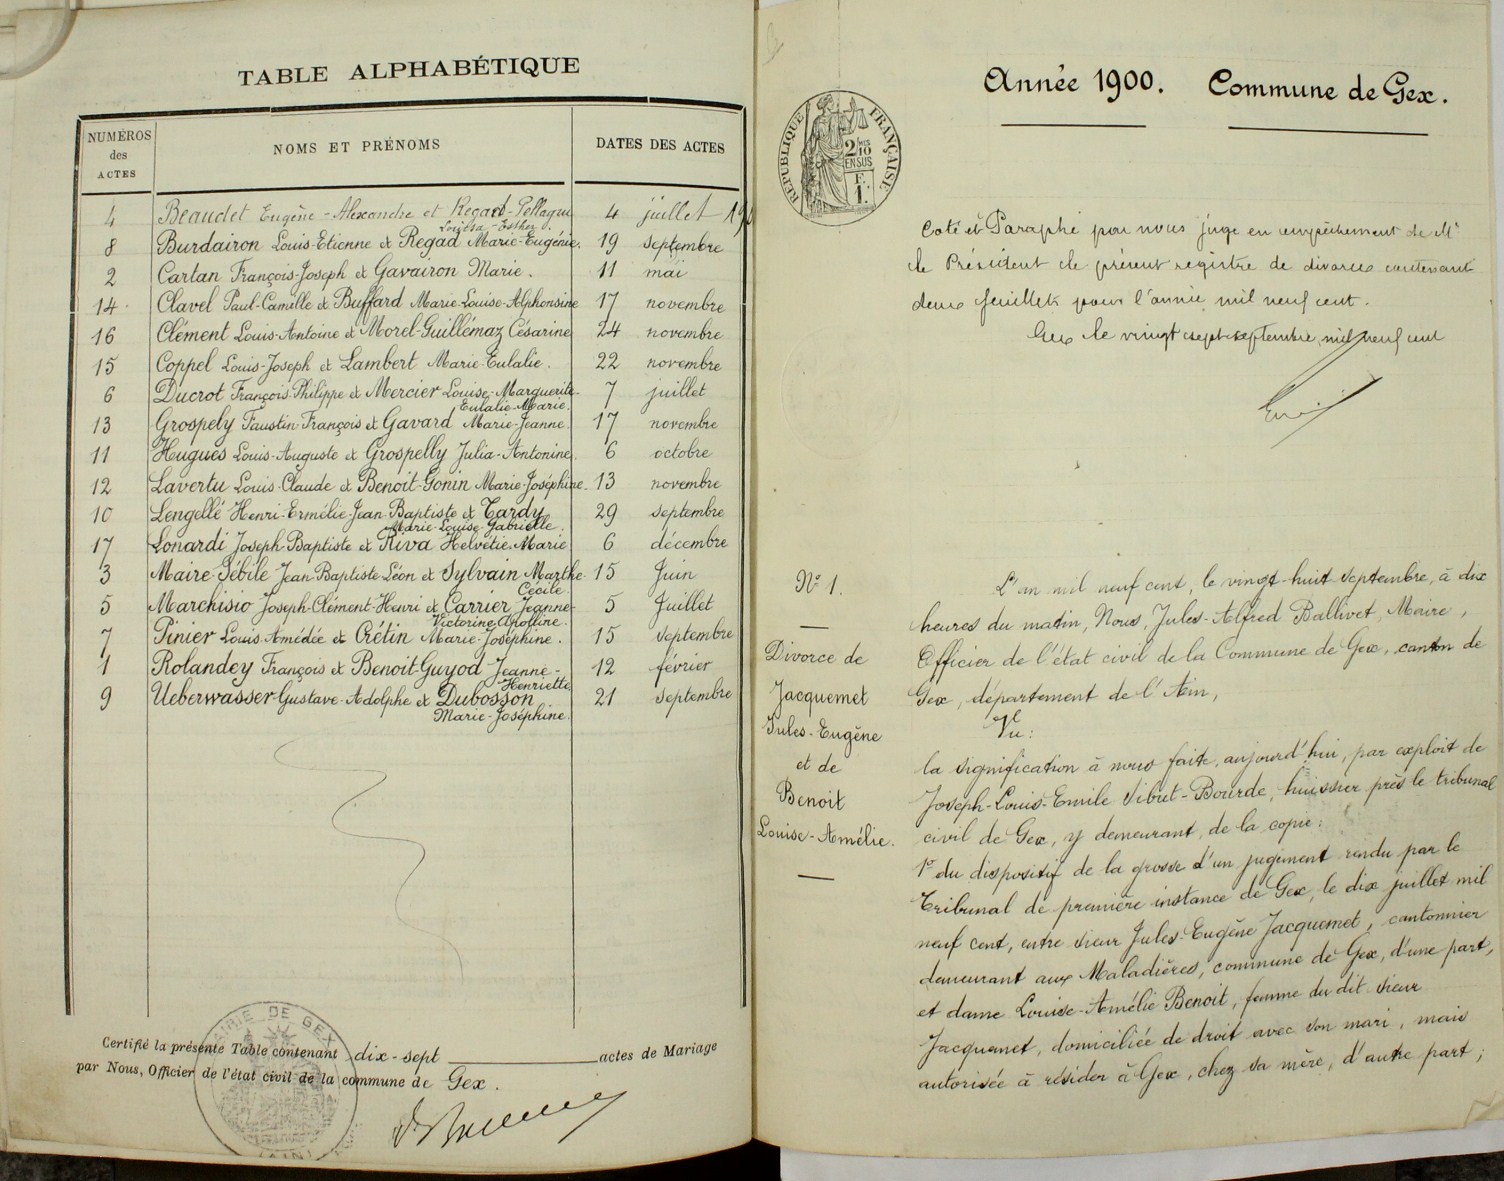 TABLE ALPHABÉTIQUE
NUMÉROS des ACTES
NOMS ET PRÉNOMS
DATES DES ACTES
4 Beaudet Eugène-Alexandre et Regard-Pellagru 4 juillet
Louisa-Esther.
8 Burdairon Louis-Etienne et Regad Marie-Eugénie. 19 septembre
2 Cartan François-Joseph et Gavairon Marie. 11 mai
14 Clavel Paul-Camille et Buffard Marie-Louise-Alphonsine 17 novembre
16 Clément Louis-Antoine et Morel-Guillémaz Césarine 24 novembre
15 Coppel Louis-Joseph et Lambert Marie-Eulalie. 22 novembre
6 Ducrot François-Philippe et Mercier Louise-Marguerite- 7 juillet
Eulalie-Marie.
13 Grospely Faustin-François et Gavard Marie-Jeanne. 17 novembre
11 Hugues Louis-Auguste et Grospelly Julia-Antonine. 6 octobre
12 Lavertu Louis-Claude et Benoit-Gonin Marie-Joséphine. 13 novembre
10 Lengellé Henri-Ermélie-Jean-Baptiste et Tardy 29 septembre
Marie-Louise-Gabrielle.
17 Lonardi Joseph-Baptiste et Riva Helvétie-Marie 6 décembre
3 Maire-Sébile Jean-Baptiste-Léon et Sylvain Marthe- 15 Juin
Cécile.
5 Marchisio Joseph-Clément-Henri et Carrier Jeanne- 5 Juillet
Victorine Apolline.
7 Pinier Louis-Amédée et Crétin Marie-Joséphine. 15 septembre
1 Rolandey François et Benoit-Guyod Jeanne- 12 février
Henriette
9 Ueberwasser Gustave-Adolphe et Dubosson 21 septembre
Marie-Joséphine.
Certifié la présente Table contenant dix-sept actes de Mariage
par Nous, Officier de l'état civil de la commune de Gex.
MAIRIE DE GEX
(AIN)
Année 1900. Commune de Gex.
RÉPUBLIQUE FRANÇAISE
2/10 EN SUS
F. 1.
Coté et Paraphé par nous juge en empêchement de Mr
le Président le présent registre de divorces contenant
deux feuillets pour l'année mil neuf cent.
Gex le vingt sept septembre mil neuf cent
N° 1.
Divorce de
Jacquemet
Jules-Eugène
et de
Benoit
Louise-Amélie.
L'an mil neuf cent, le vingt-huit septembre, à dix
heures du matin, Nous, Jules-Alfred Ballivet, Maire,
Officier de l'état civil de la Commune de Gex, canton de
Gex, département de l'Ain,
Vu:
la signification à nous faite, aujourd'hui, par exploit de
Joseph-Louis-Emile Sibut-Bourde, huissier près le tribunal
civil de Gex, y demeurant, de la copie:
1° du dispositif de la grosse d'un jugement rendu par le
Tribunal de première instance de Gex, le dix juillet mil
neuf cent, entre sieur Jules-Eugène Jacquemet, cantonnier
demeurant aux Maladières, commune de Gex, d'une part,
et dame Louise-Amélie Benoit, femme du dit sieur
Jacquemet, domiciliée de droit avec son mari, mais
autorisée à résider à Gex, chez sa mère, d'autre part;